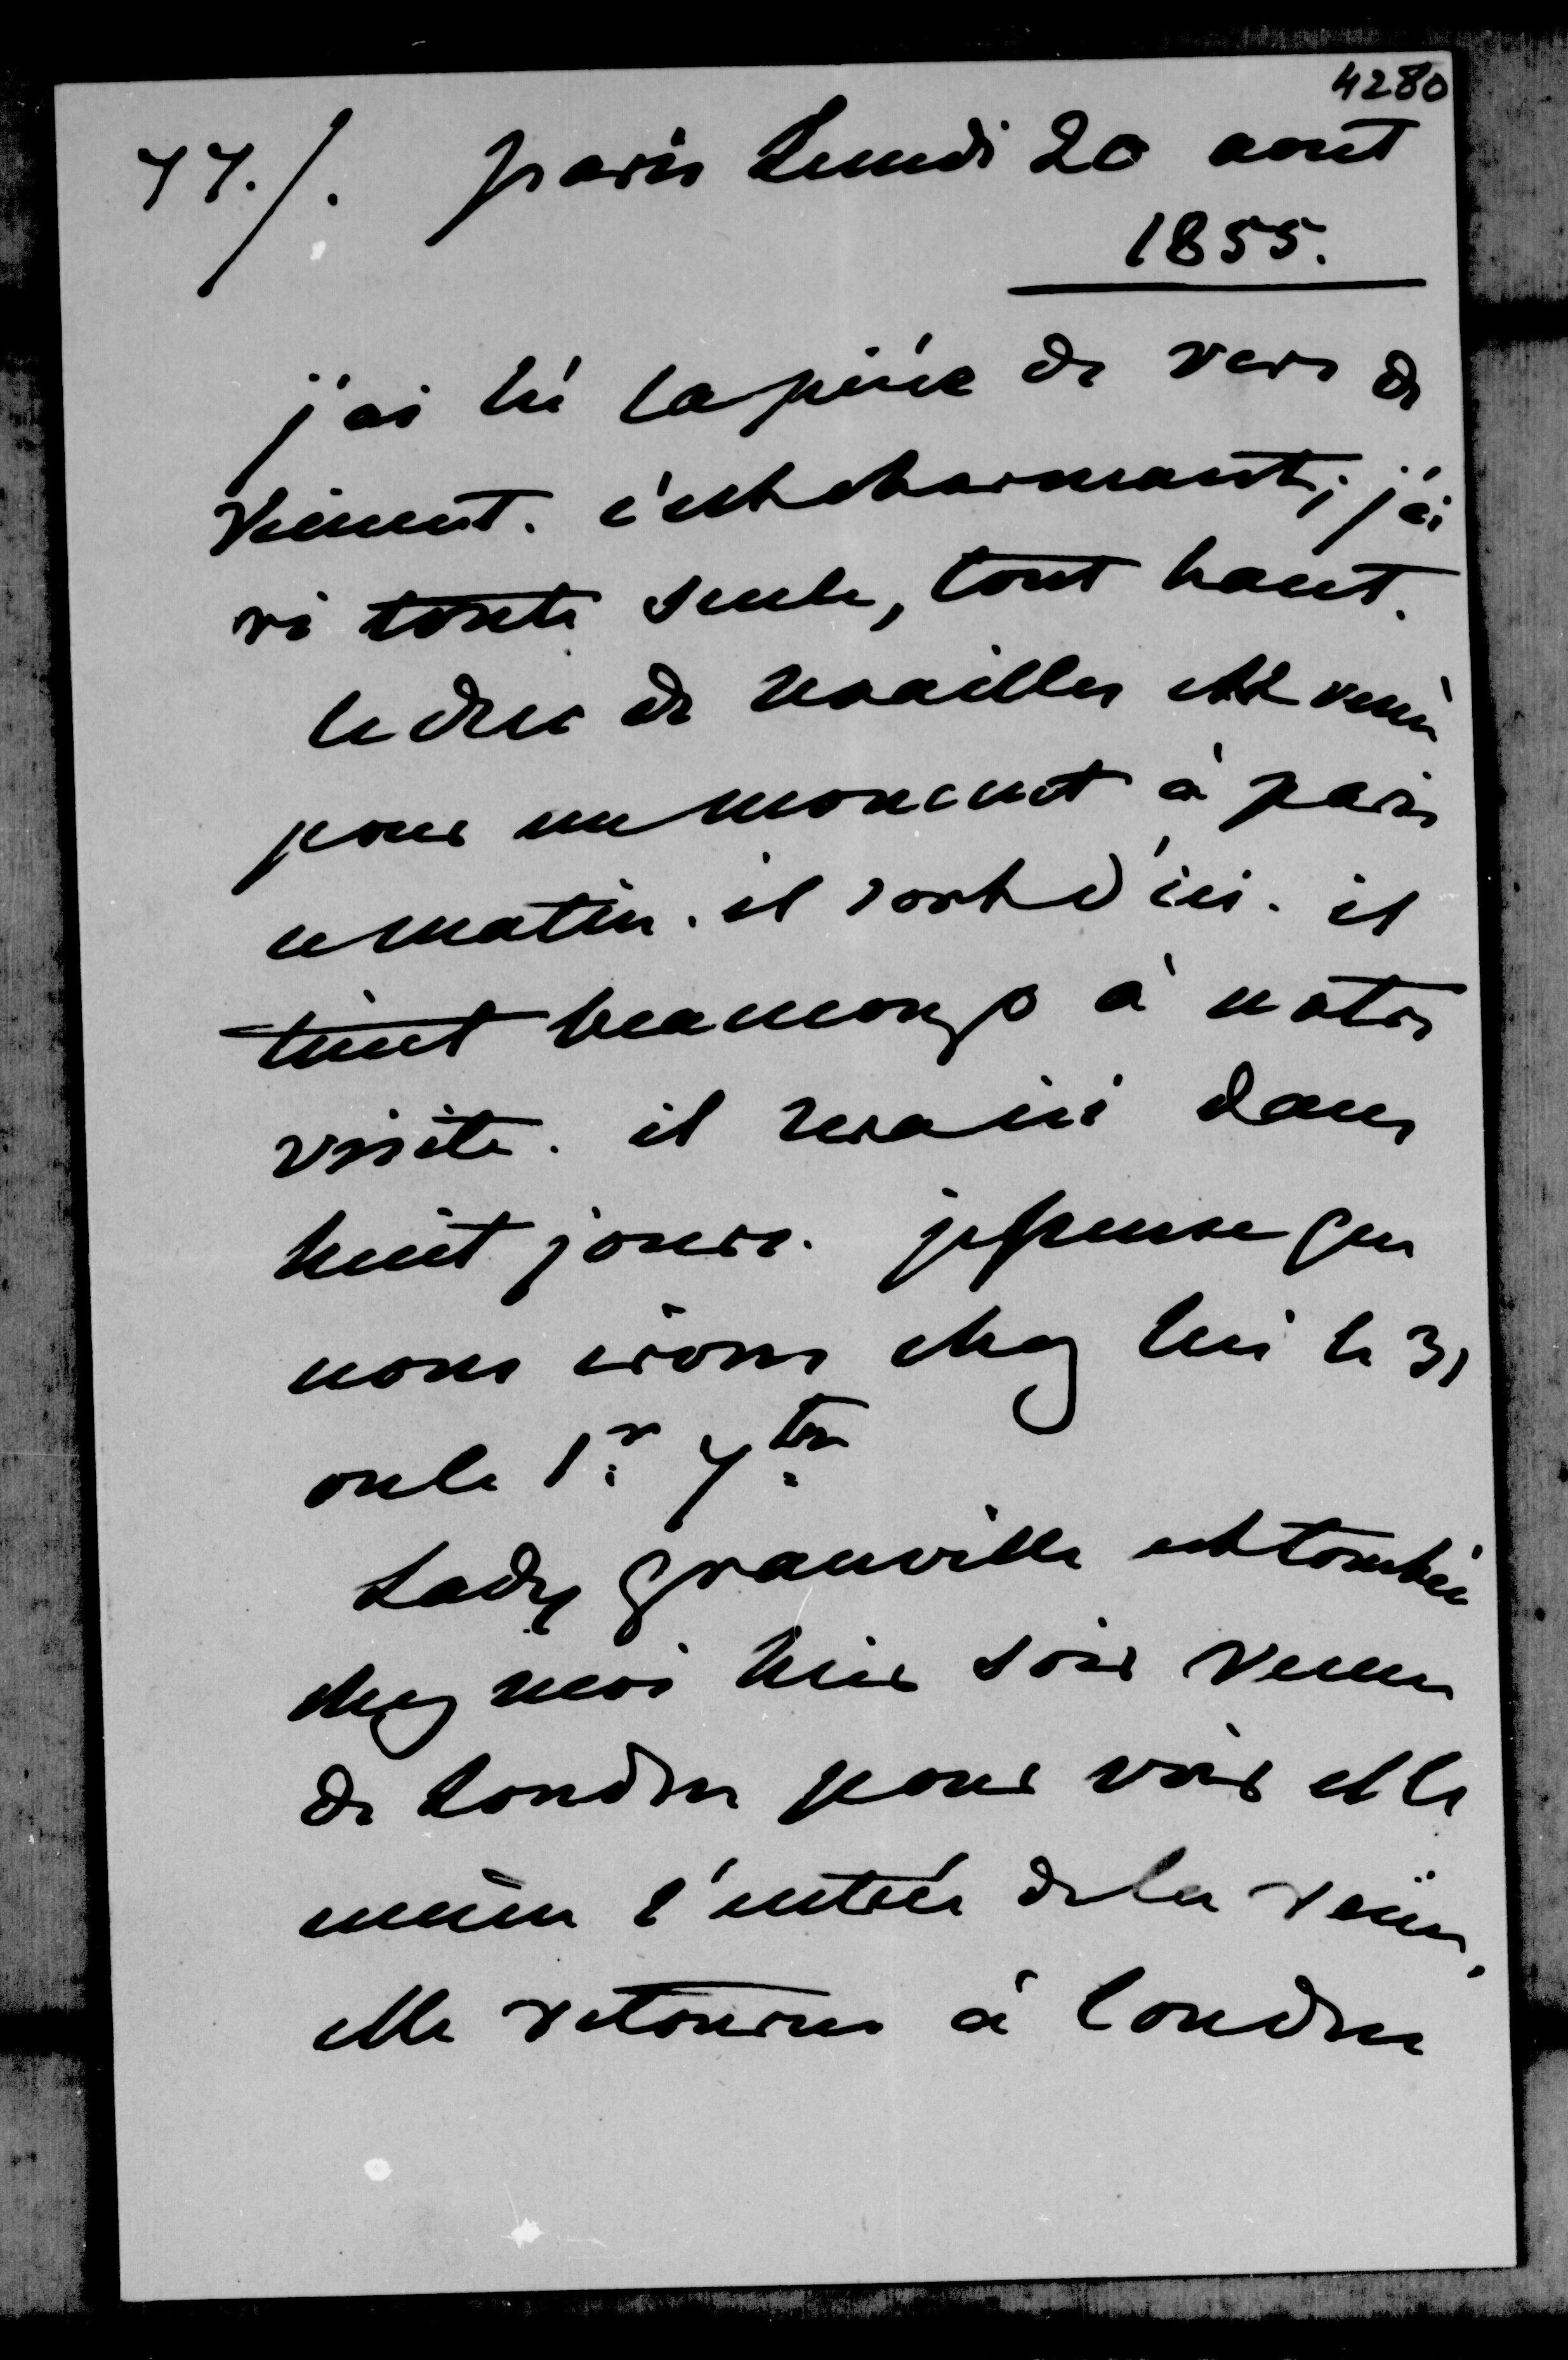 4280
77./. paris Lundi 20 aout
1855.
j'ai lu la pièce de vers de
Viennet. c'est charmant; j'ai
ri toute seule, tout haut.
le duc de Noailles est venu
pour un moment à paris
ce matin. il sort d'ici. il
tient beaucoup à notre
visite. il sera ici dans
huit jours. je pense que
nous irons chez lui le 31
ou le 1er 7bre
Lady granville est tombée
chez moi hier soir venue
de Londres pour voir elle
même l'entrée de la reine.
elle retourne à Londres